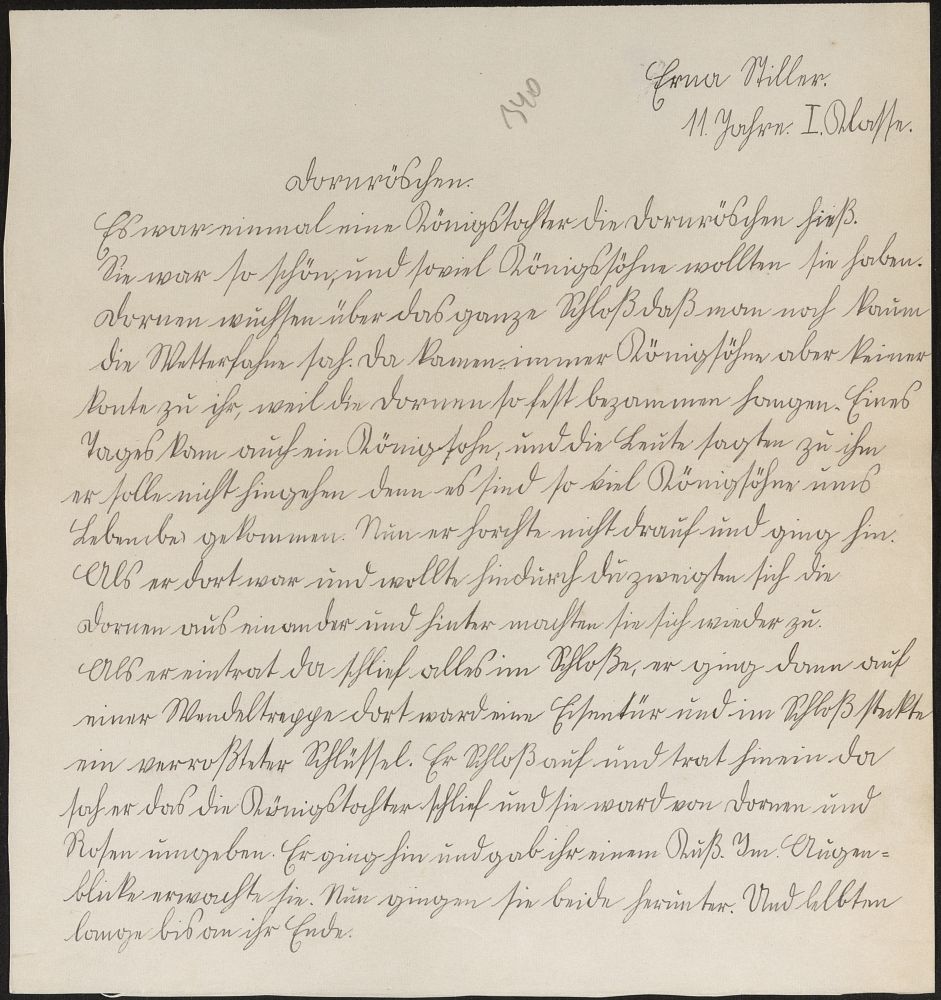 Erna Stiller.
340
11. Jahre. I. Klasse.
Dornröschen.
Es war einmal eine Königstochter die Dornröschen hieß.
Sie war so schön, und soviel Königssöhne wollten sie haben.
Dornen wuchsen über das ganze Schloß daß man noch kaum
die Wetterfahne sah. Da kamen immer Königsöhne aber keiner
konte zu ihr, weil die Dornen so fest bezammen hangen. Eines
Tages kam auch ein Königsohn, und die Leute sagten zu ihm
er solle nicht hingehen denn es sind so viel Königsöhne ums
Leben gekommen. Nun er horchte nicht drauf und ging hin.
Als er dort war und wollte hindurch du zweigten sich die
Dornen auseinander und hinter machten sie sich wieder zu.
Als er eintrat da schlief alles im Schloße, er ging dann auf
einer Wendeltreppe dort ward eine Eisentür und im Schloß steckte
ein verroßteter Schlüssel. Er Schloß auf und trat hinein da
sah er das die Königstochter schlief und sie ward von Dornen und
Rosen umgeben. Er ging hin und gab ihr einem Kuß. Im. Augen=
blicke erwachte sie. Nun gingen sie beide herunter. Und lelbten
lange bis an ihr Ende.